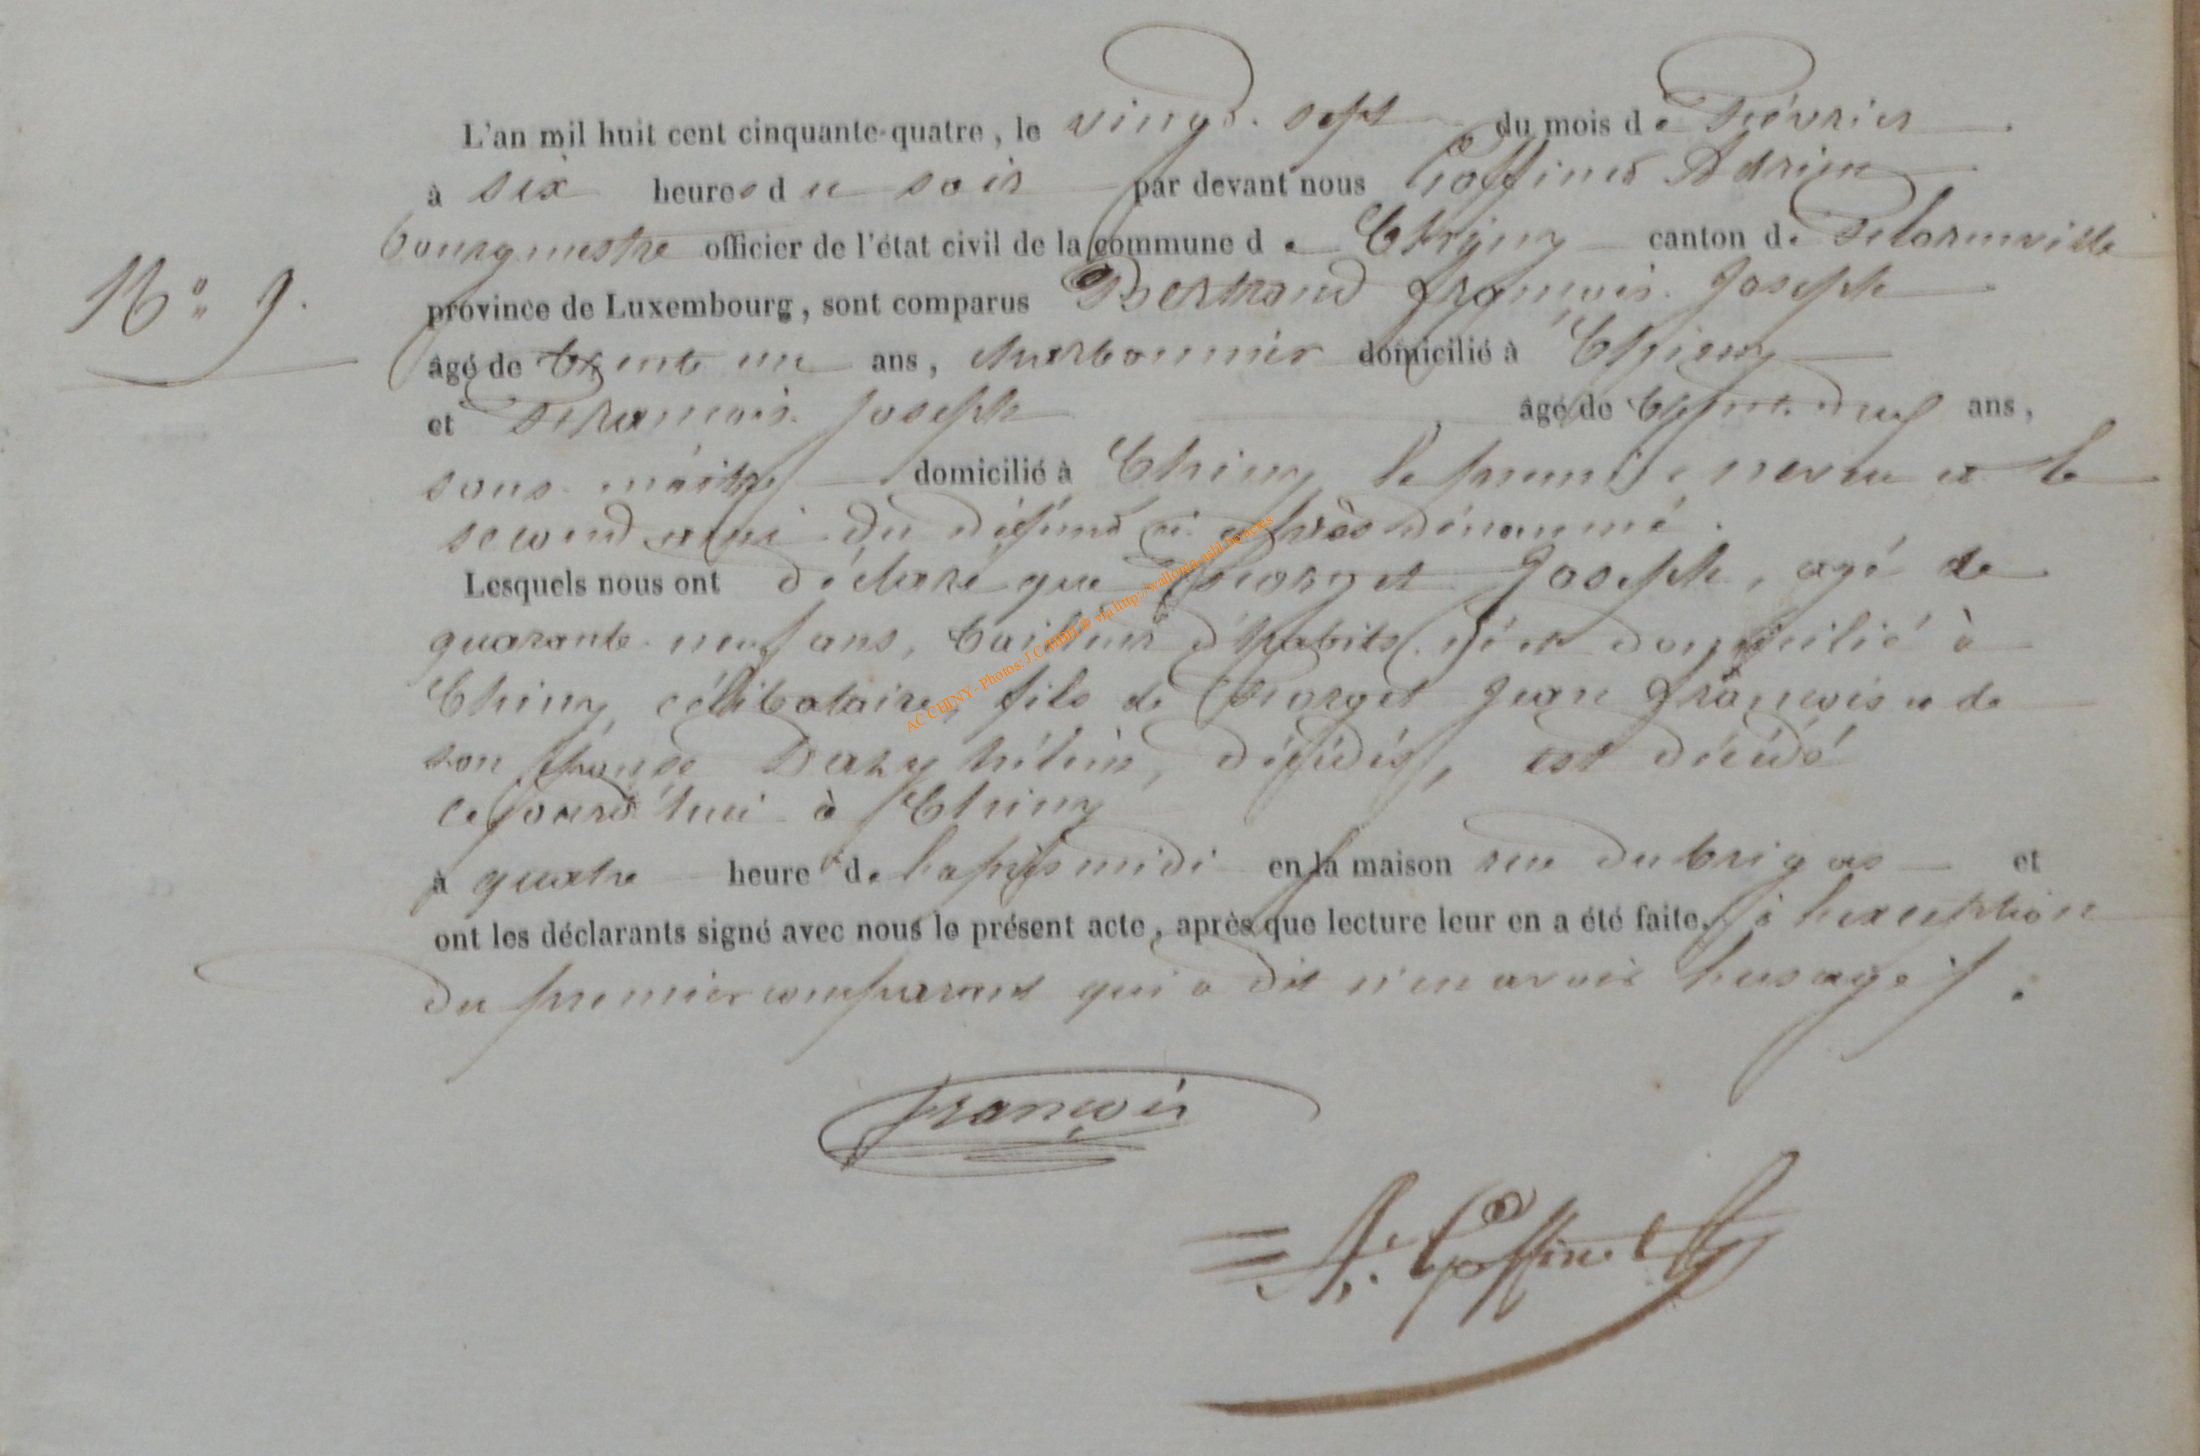 L'an mil huit cent cinquante-quatre, le vingt-sept du mois de Février
à six heures du soir par devant nous Goffinet Adrien
bourgmestre officier de l'état civil de la commune de Chiny canton de Florenville
N° 9.
province de Luxembourg, sont comparus Bertrand François Joseph
âgé de trente un ans, charbonnier domicilié à Chiny
et François Joseph âgé de trente-deux ans,
sous-maître domicilié à Chiny le premier neveu et le
second ami du défunt ci après dénommé.
Lesquels nous ont déclaré que Joseph, agé de
quarante-neuf ans, tailleur d'habits, né et domicilié à
Chiny, célibataire, fils de Jean François et de
son épouse hélène, décédés, est décédé
ce jourd'hui à Chiny
à quatre heure de l'après midi en la maison rue du et
ont les déclarants signé avec nous le présent acte, après que lecture leur en a été faite, à l'exception
du premier comparant qui a dit n'en avoir l'usage.
françois
A. Goffinet
AC CHINY - Photos: J C HBH © via http://wallonia-asbl.be/actes